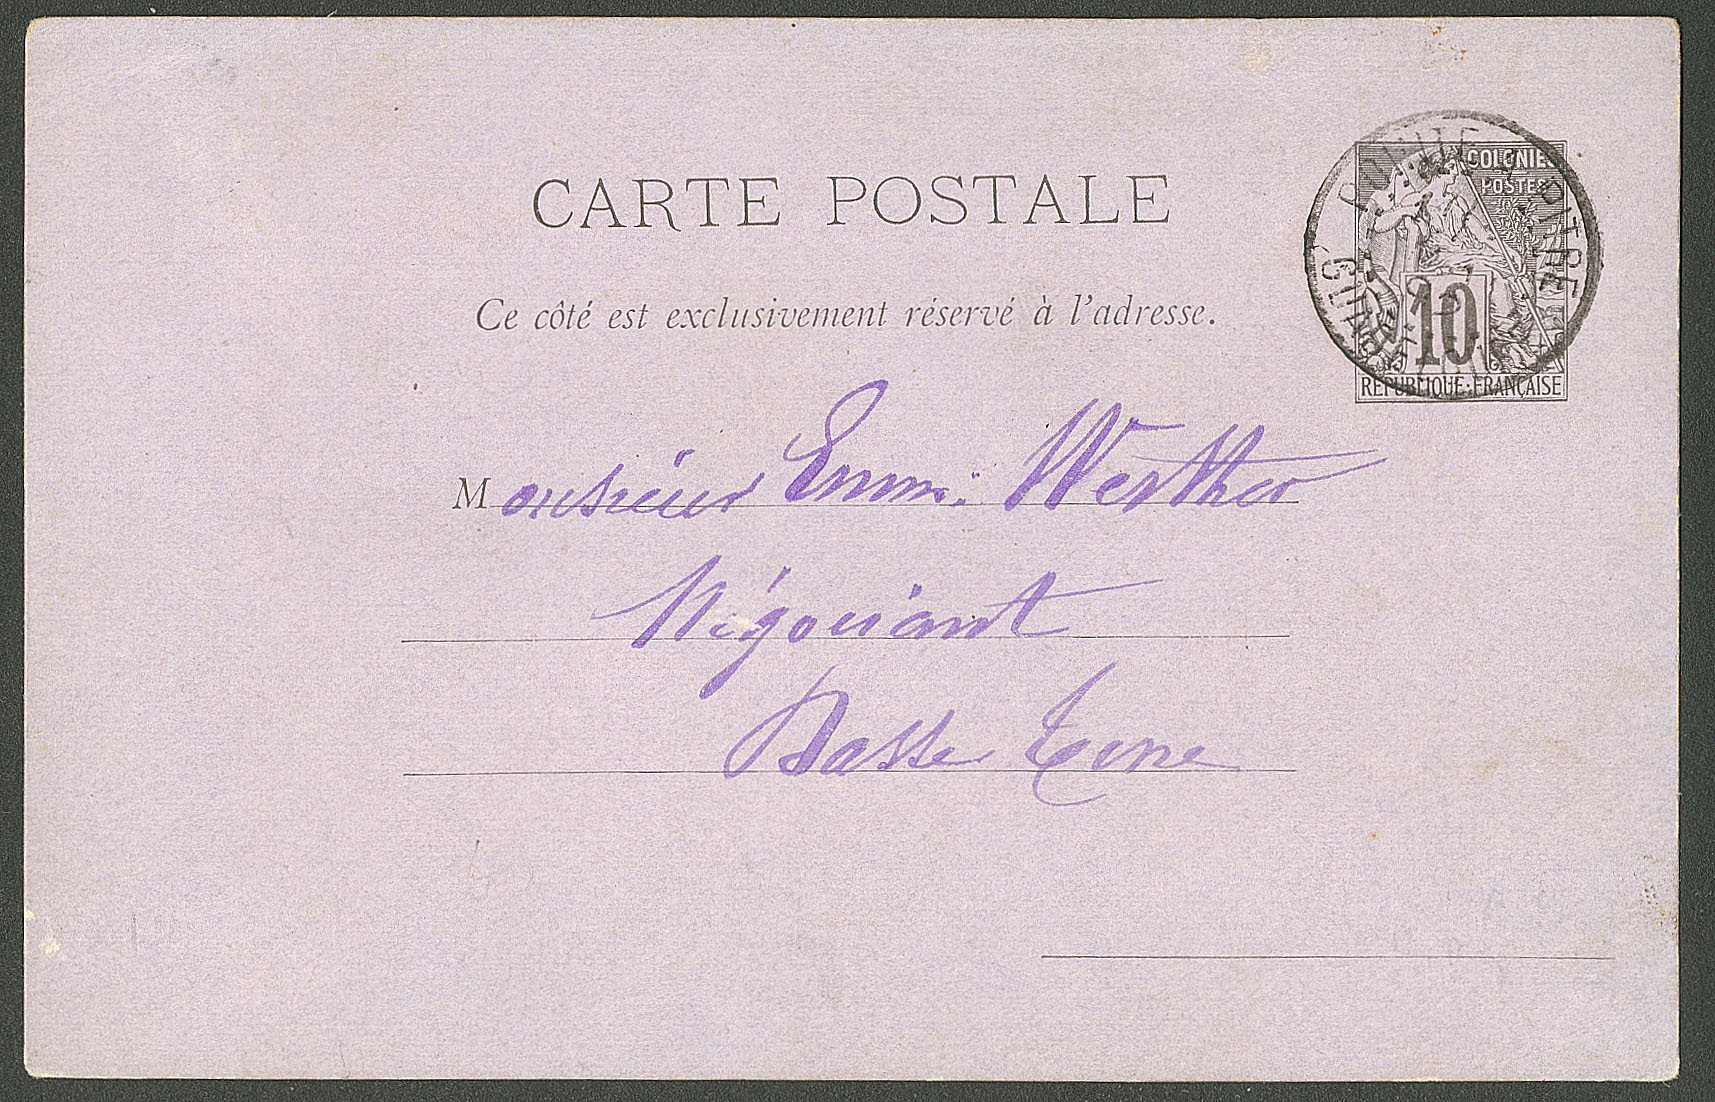 CARTE POSTALE
Ce côté est exclusivement réservé à l'adresse.
COLONIES
POSTES
10
RÉPUBLIQUE·FRANÇAISE
POINTE A PITRE
GUADELOUPE
Monsieur Emm: Werther
Négociant
Basse Terre